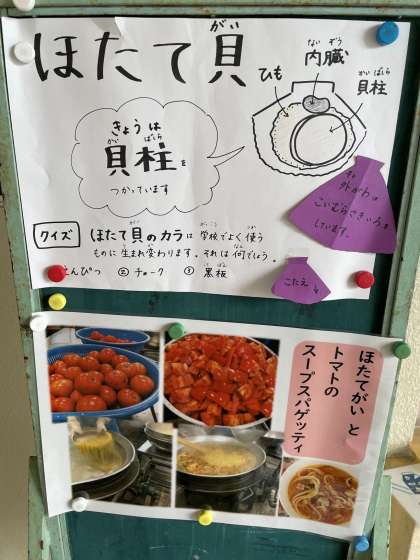 ほたて貝
がい
ひも
ないぞう
内臓
かいばしら
貝柱
きょうは
がいばしら
貝柱を
つかっています
外がわは
こいむらさきいろを
しています。
クイズ
ほたて貝のカラは学校でよく使う
ものに生まれ変わります。それは何でしょう。
えんぴつ ②チョーク ③黒板
こたえ
ほたてがいと
トマトの
スープスパゲッティ